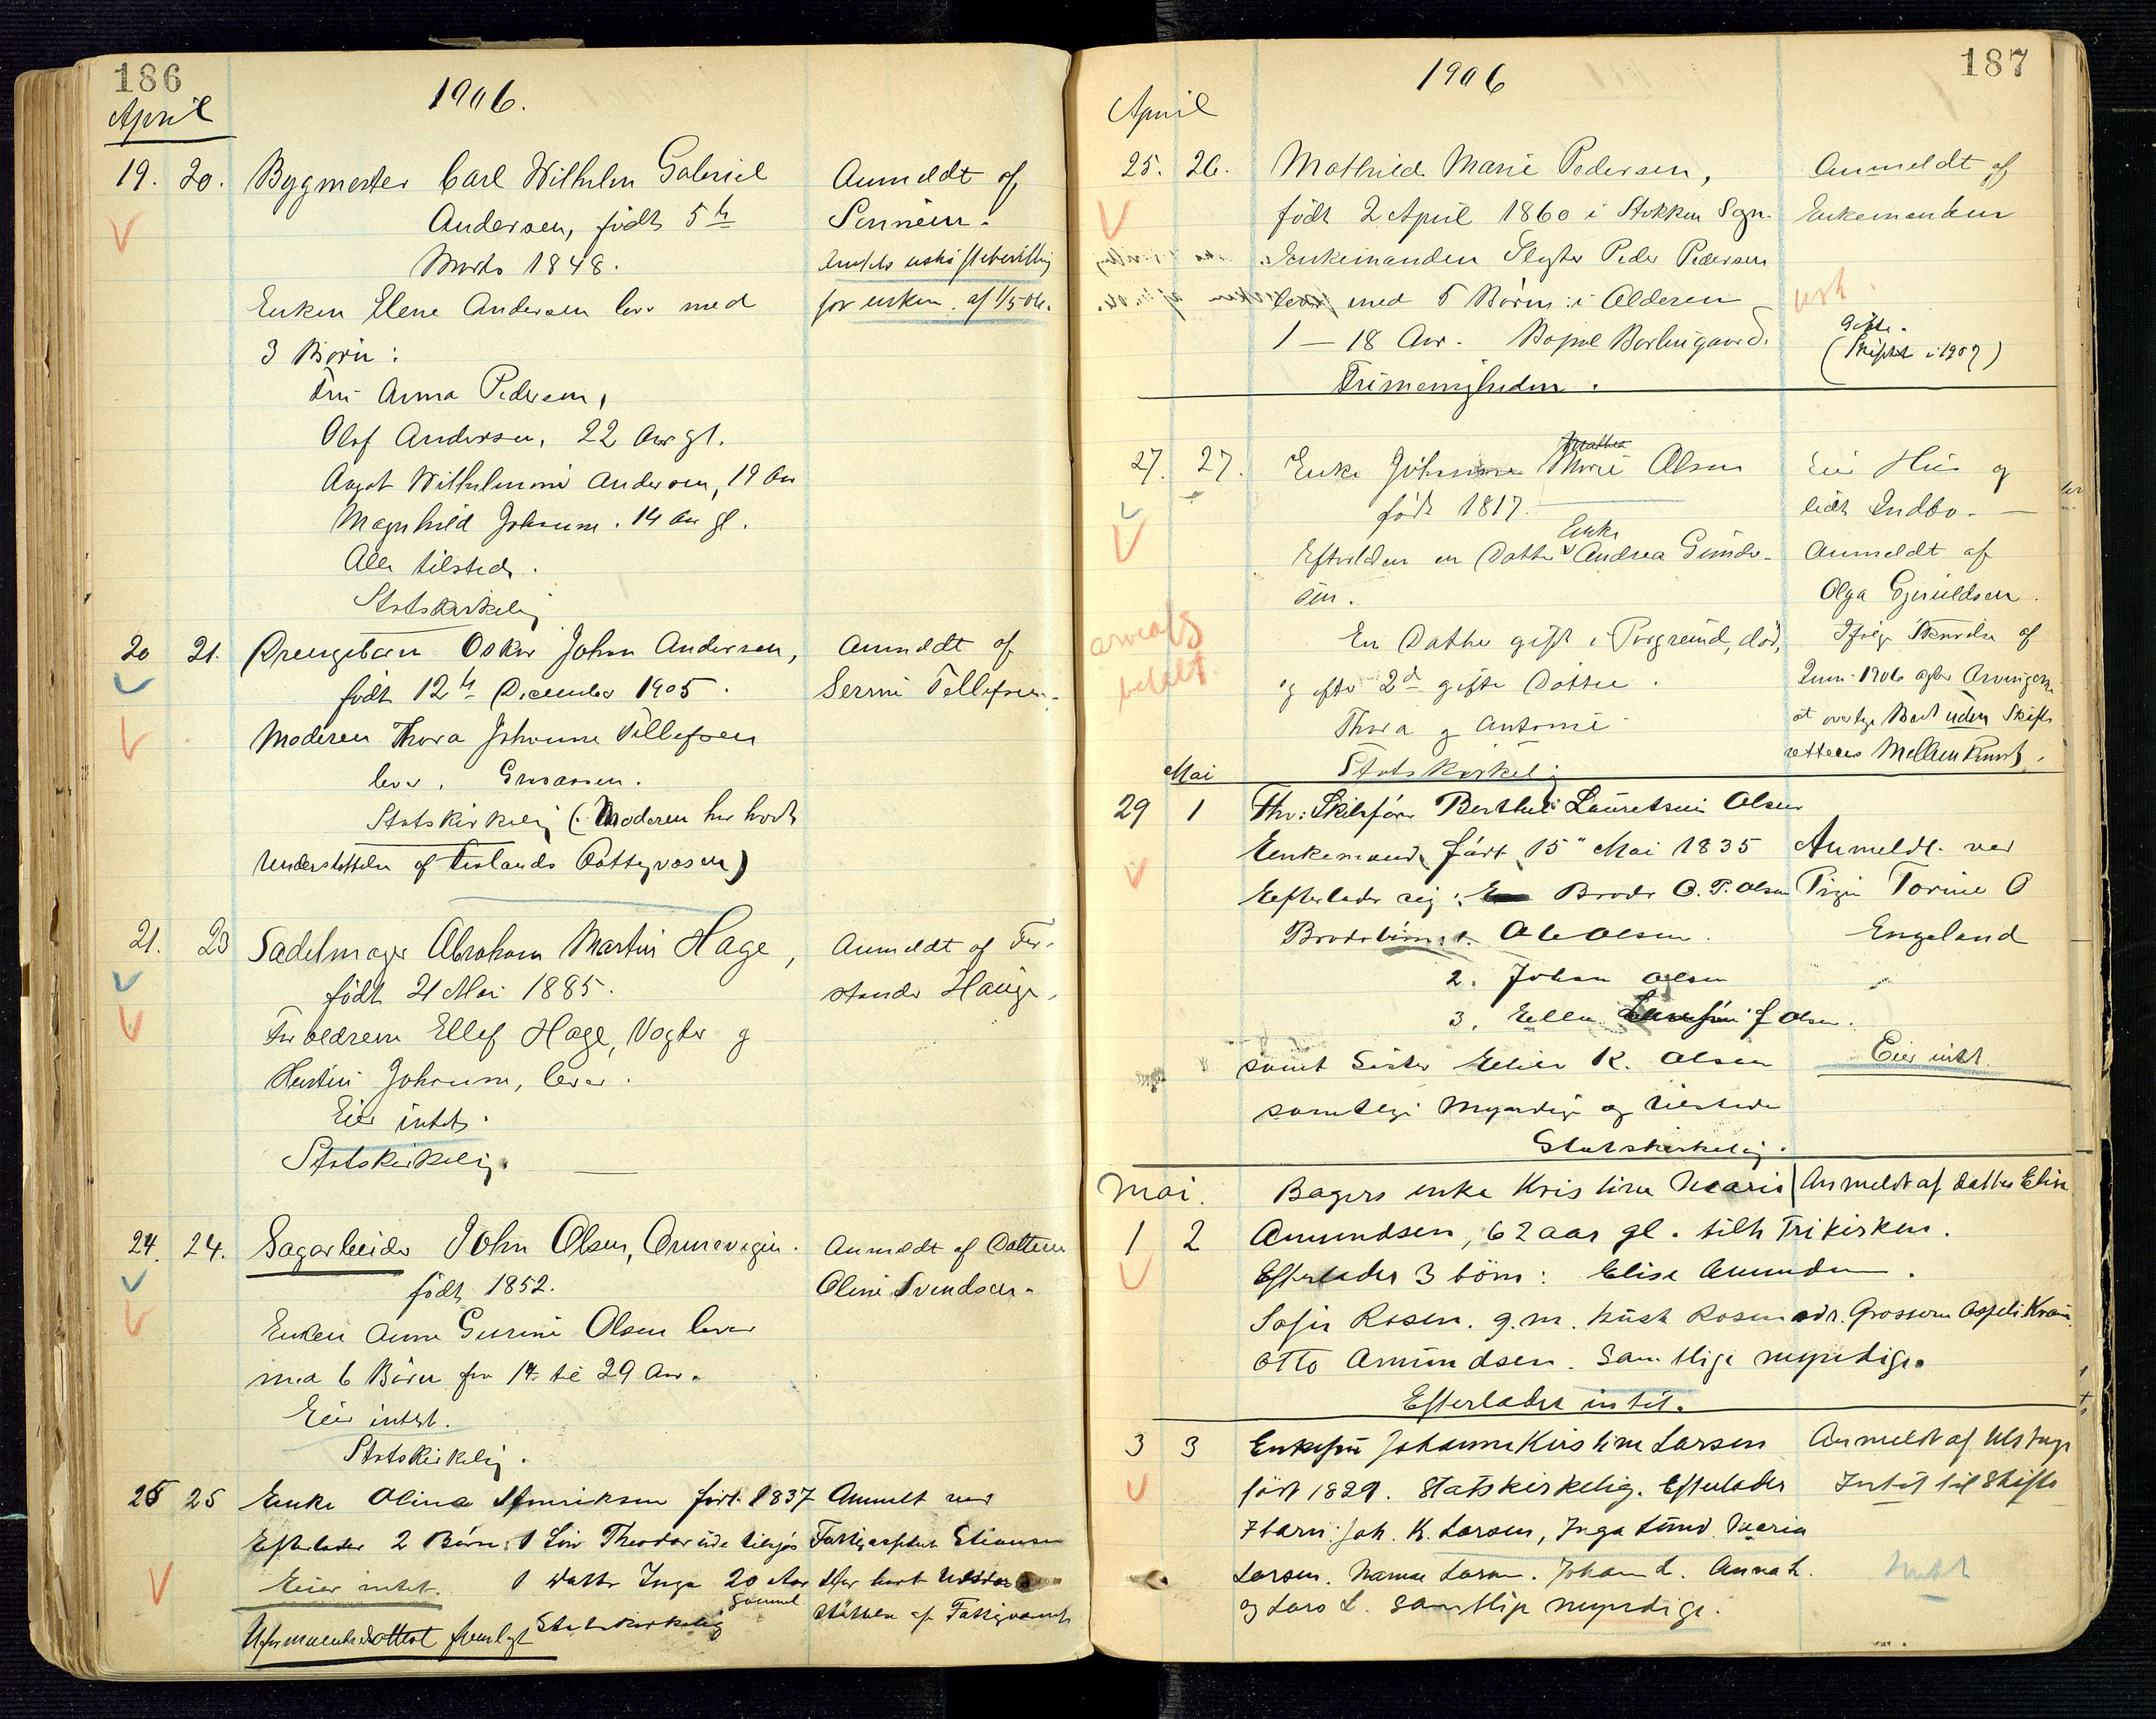 186
1906.
April
19. 20. Bygmester Carl Wilhelm Gabriel
Andersen, født 5te
Marts 1848.
Enken Elene Andersen lever med
3 Børn:
Fru Anna Pedersen,
Olaf Andersen, 22 Aar gl.
August Wilhelmine Andersen, 19 Aar
Magnhild Johanne. 14 Aar gl.
Alle tilstede.
Statskirkelig
Anmeldt af
Sønnen.
uskiftebevilling
for enken af 1/5 06.
20 21. Drengebarn Oskar Johan Andersen,
født 12te December 1905.
Moderen Thora Johanne Tellefsen
lever.
Statskirkelig (Moderen har havt
Understøttelse af Fattigvæsen)
Anmeldt af
Serine Tellefsen.
21. 23 Sadelmager Abraham Martin Hage,
født 21 Mai 1885.
Forældrene Ellef Hage, Vogter og
Hustru Johanne, lever.
Eier intet.
Statskirkelig.
Anmeldt af For-
stander Hauge.
24. 24. Sagarbeider John Olsen,
født 1852.
Enken Anne Gurine Olsen lever
med 6 Børn fra 14 til 29 Aar.
Eier intet.
Statskirkelig.
Anmeldt af Datteren
Oline Svendsen.
25 25 Enke Olina Henriksen født 1837
Efterlader 2 Børn: 1 Søn Theodor ude tilsjøs
Eier intet. 1 Datter Inga 20 Aar
gammel
fremlagt Statskirkelig
Anmelt ved
Har havt
støttelse af Fattigvæsen
187
1906
April
25. 26. Mathilde Marie Pedersen,
født 2 April 1860 i Stokken Sogn.
Enkemanden Slagter Peder Pedersen
lever med 5 Børn i Alderen
1 – 18 Aar. Bopæl
Frimenigheden.
Anmeldt af
Enkemanden
(Skiftet i 1907)
27. 27. Enke Johanne Mathea Marie Olsen
født 1817.
Enke
Efterlader en Datter Andrea Gunder-
sen.
En Datter gift i Porsgrund, død,
og efter 2de gifte Døttre.
Thora og Antonie
Statskirkelig
Eier Hus og
lidt Indbo.
Anmeldt af
Olga
Ifølge Skrivelse af
Juni 1906 agter Arvingerne
at overtage Boet uden Skifte-
rettens Mellemkomst.
Mai
29 1 Fhv: Skibsfører Berthel Lauretius Olsen
Enkemand, født 15" Mai 1835
Efterlader sig: Broder O. P. Olsen
Broderbørn: 1. Ole Olsen.
2. Johan Olsen
3. Ellen Olsen.
samt Søster K. Olsen
samtlige Myndige og tilstede
Statskirkelig.
Anmeldt ved
Pigen Torine O
Engeland
Eier intet
Mai.
1 2 Bagers enke Kristine Marie
Amundsen, 62 aar gl. tilh Frikirken.
Efterlader 3 børn: Elise Amundsen.
Sofie Rosen. g.m. Rosen adr. Grosserer Aspelin
Otto Amundsen. Samtlige myndige.
Efterlader intet.
Anmeldt af datter Elise
3 3 Enkefru Johanne Kirstine Larsen
født 1829. Statskirkelig. Efterlader
7 barn: Joh. K. Larsen, Inga Lund, Maria
Larsen. Larsen. Johan L. Anna L.
og Lars L. Samtlige myndige.
Anmeldt af
Intet til Skifte
Intet